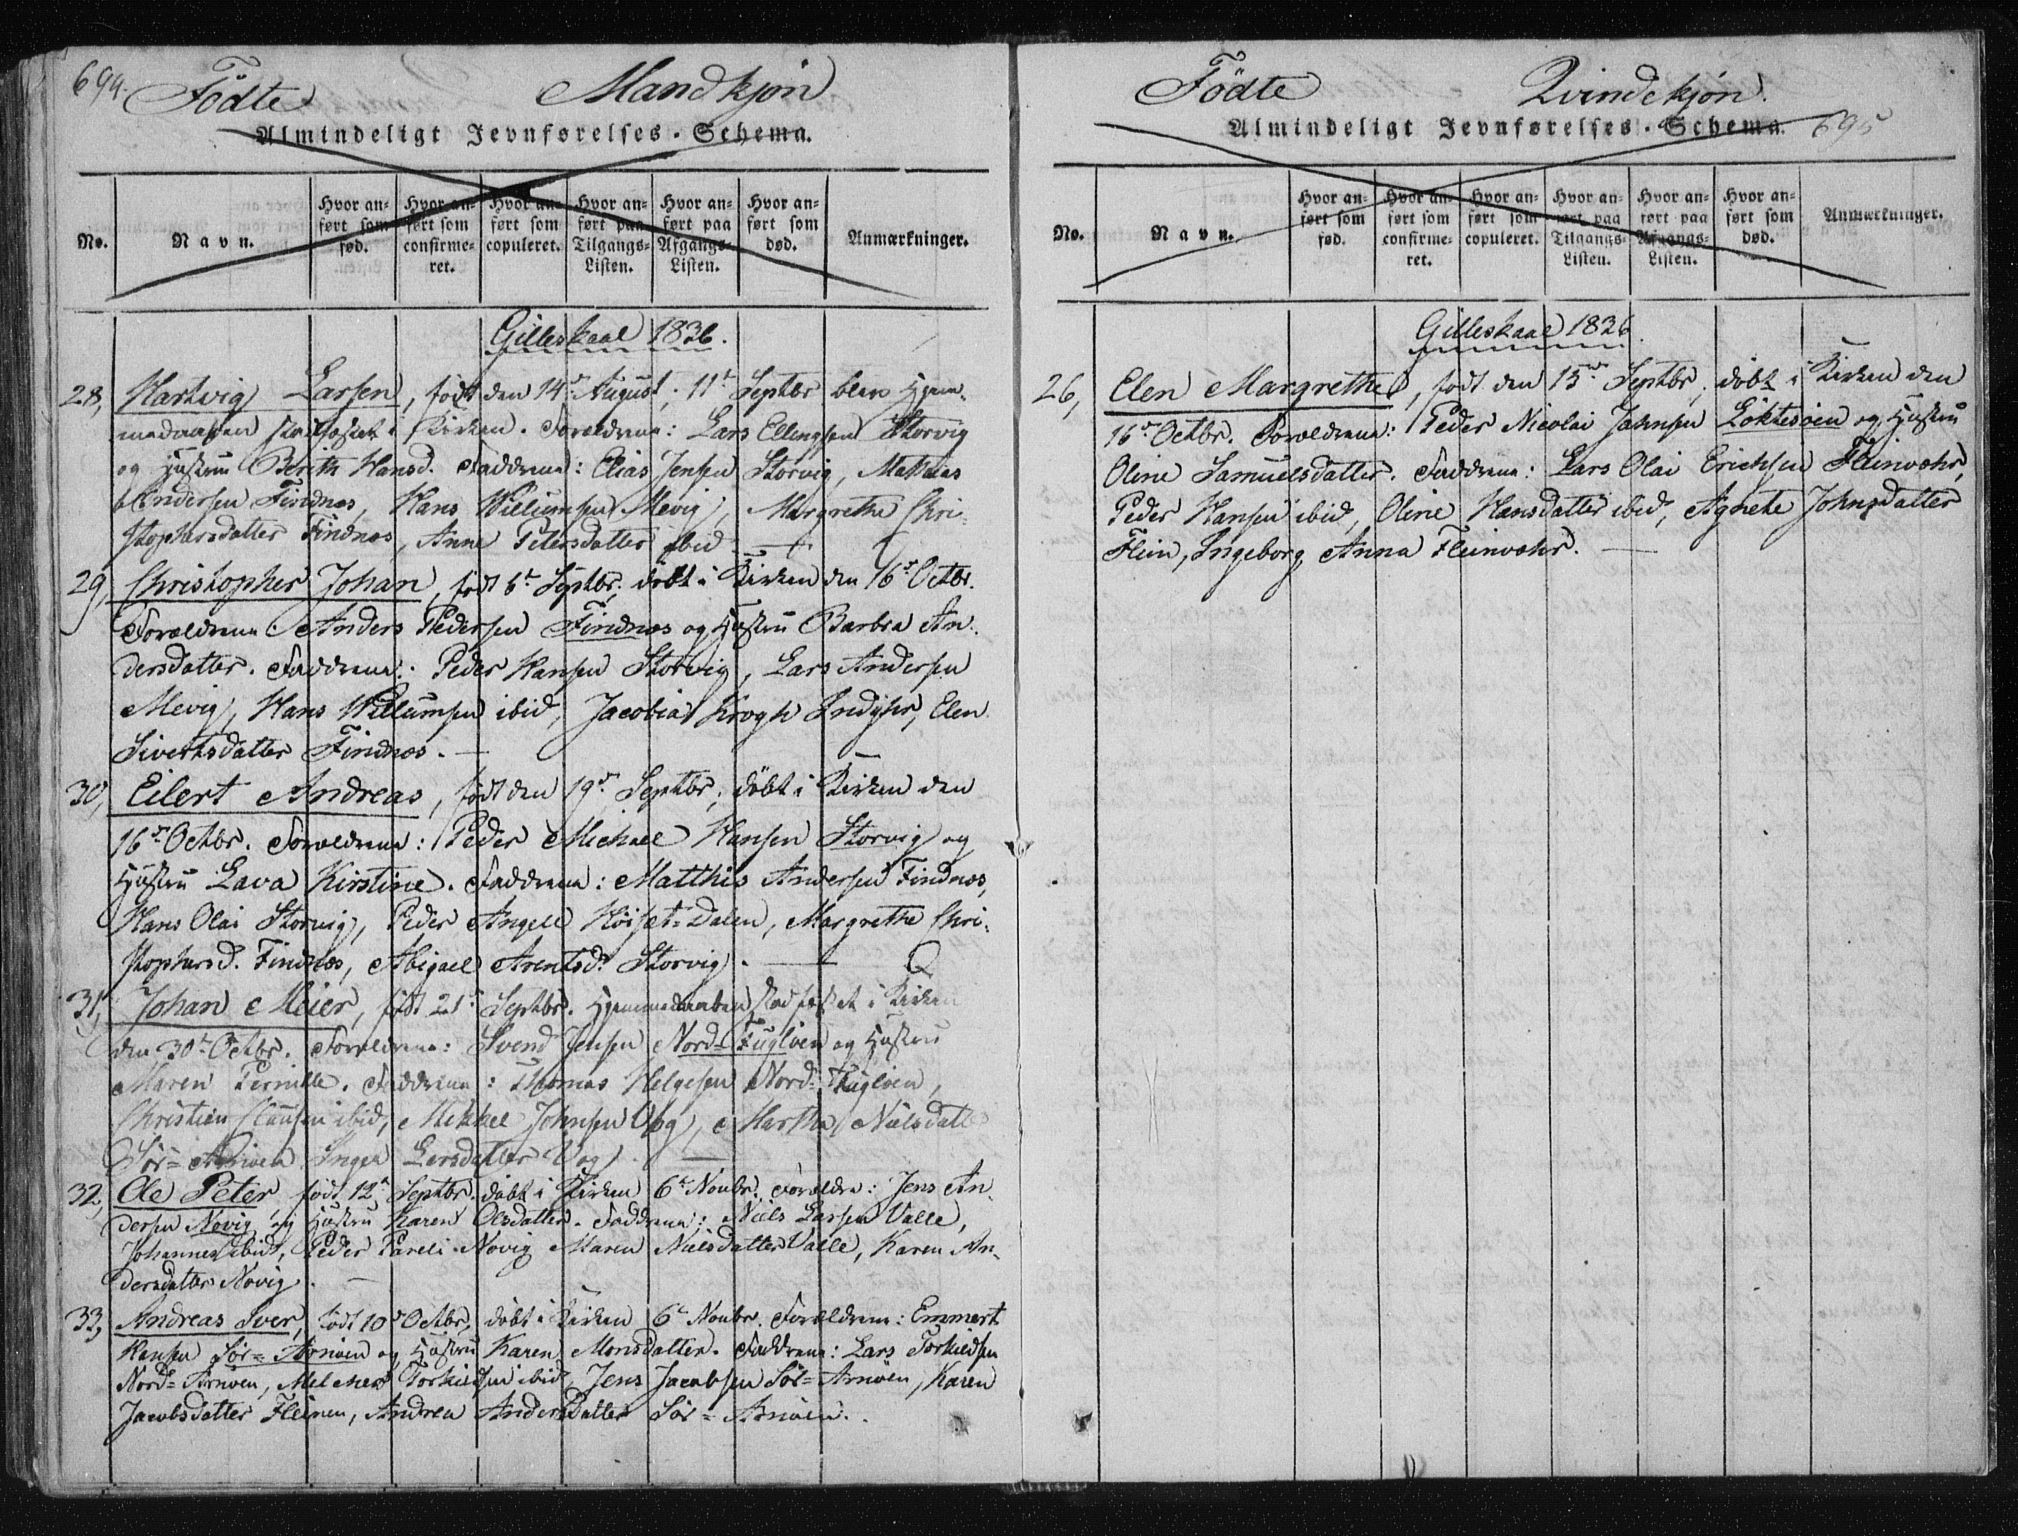 694.
Födte Mandkjön
Almindeligt Jevnførelses-Schema.
No.
Navn.
Hvor anført som fød.
Hvor anført som confirmeret.
Hvor anført som copuleret.
Hvor anført paa Tilgangs-Listen.
Hvor anført paa Afgangs-Listen.
Hvor anført som død.
Anmærkninger.
Gilleskaal 1836.
28, Hartvig Larsen, født den 14de August; 11te Septbr blev Hjem-
medaaben stadfæstet i Kirken. Forældrene: Lars Ellingsen Storvig
og Hustru Berith Hansd. Faddrene: Elias Jensen Storvig, Mathias
Andersen Findnæs, Hans Willumsen Mevig, Margrethe Chri-
stophersdatter Findnæs, Anne Petersdatter ibid.
29, Christopher Johan, født 6te Septbr; döbt i Kirken den 16de Octbr.
Forældrene: Anders Pedersen Findnæs og Hustru Barbra An-
dersdatter. Faddrene: Peder Hansen Storvig, Lars Andersen
Mevig, Hans Willumsen ibid, Jacobia Krogh Elen
Sivertsdatter Findnæs.
30, Eilert Andreas, født den 19de Septbr; döbt i Kirken den
16de Octbr. Forældrene: Peder Michael Hansen Storvig og
Hustru Lava Kirstine. Faddrene: Matthis Andersen Findnæs,
Hans Olai Storvig, Peder Angell Höiset-Dalen, Margrethe Chri-
stophersd. Findnæs, Abigael Arentsdr Storvig.
31, Johan Meier, födt 21de Septbr. Hjemmedaaben stadfæstet i Kirken
den 30te Octbr. Forældrene: Svend Jensen Nord-Fuglöen og Hustru
Maren Pernille. Faddrene: Thomas Helgesen Nord-Fuglöen,
Christien Clausen ibid, Mikkel Johnsen Martha Nielsdatter
Sör-Arnöen Inger Larsdatter Vog.
32, Ole Peter født 12te Septbr. döbt i Kirken 6te Novbr. Forældre: Jens An-
dersen Novig og Hustru Karen Olsdatter. Faddrene: Niels Larsen Valle,
Johannes ibid, Peder Pareli Novig Maren Nielsdatter Valle, Karen An-
dersdatter Novig.
33, Andreas Iver, født 10de Octbr, döbt i Kirken 6te Novbr. Forældrene: Emmert
Hansen Sör-Arnöen og Hustru Karen Monsdatter. Faddrene: Lars Torkildsen
Nord-Arnöen, Melcher Torkildsen ibid, Jens Jacobsen Sör-Arnöen, Karen
Jacobsdatter Fleinen, Andrea Andersdatter Sör-Arnöen.
Födte Qvindekjön.
Almindeligt Jevnførelses-Schema. 695
No.
Navn.
Hvor anført som fød.
Hvor anført som confirmeret.
Hvor anført som copuleret.
Hvor anført paa Tilgangs-Listen.
Hvor anført paa Afgangs-Listen.
Hvor anført som død.
Anmærkninger.
Gilleskaal 1836.
26, Elen Margrethe, født den 15de Septbr, döbt i Kirken den
16de Octbr. Forældrene: Peder Nicolai Jahnsen Löktesöen og Hustru
Oline Samuelsdatter. Faddrene: Lars Olai Erichsen Fleinvæhr,
Peder Hansen ibid, Oline Hansdatter ibid, Agnete Johnsdatter
Flein, Ingeborg Anna Fleinvæhr.